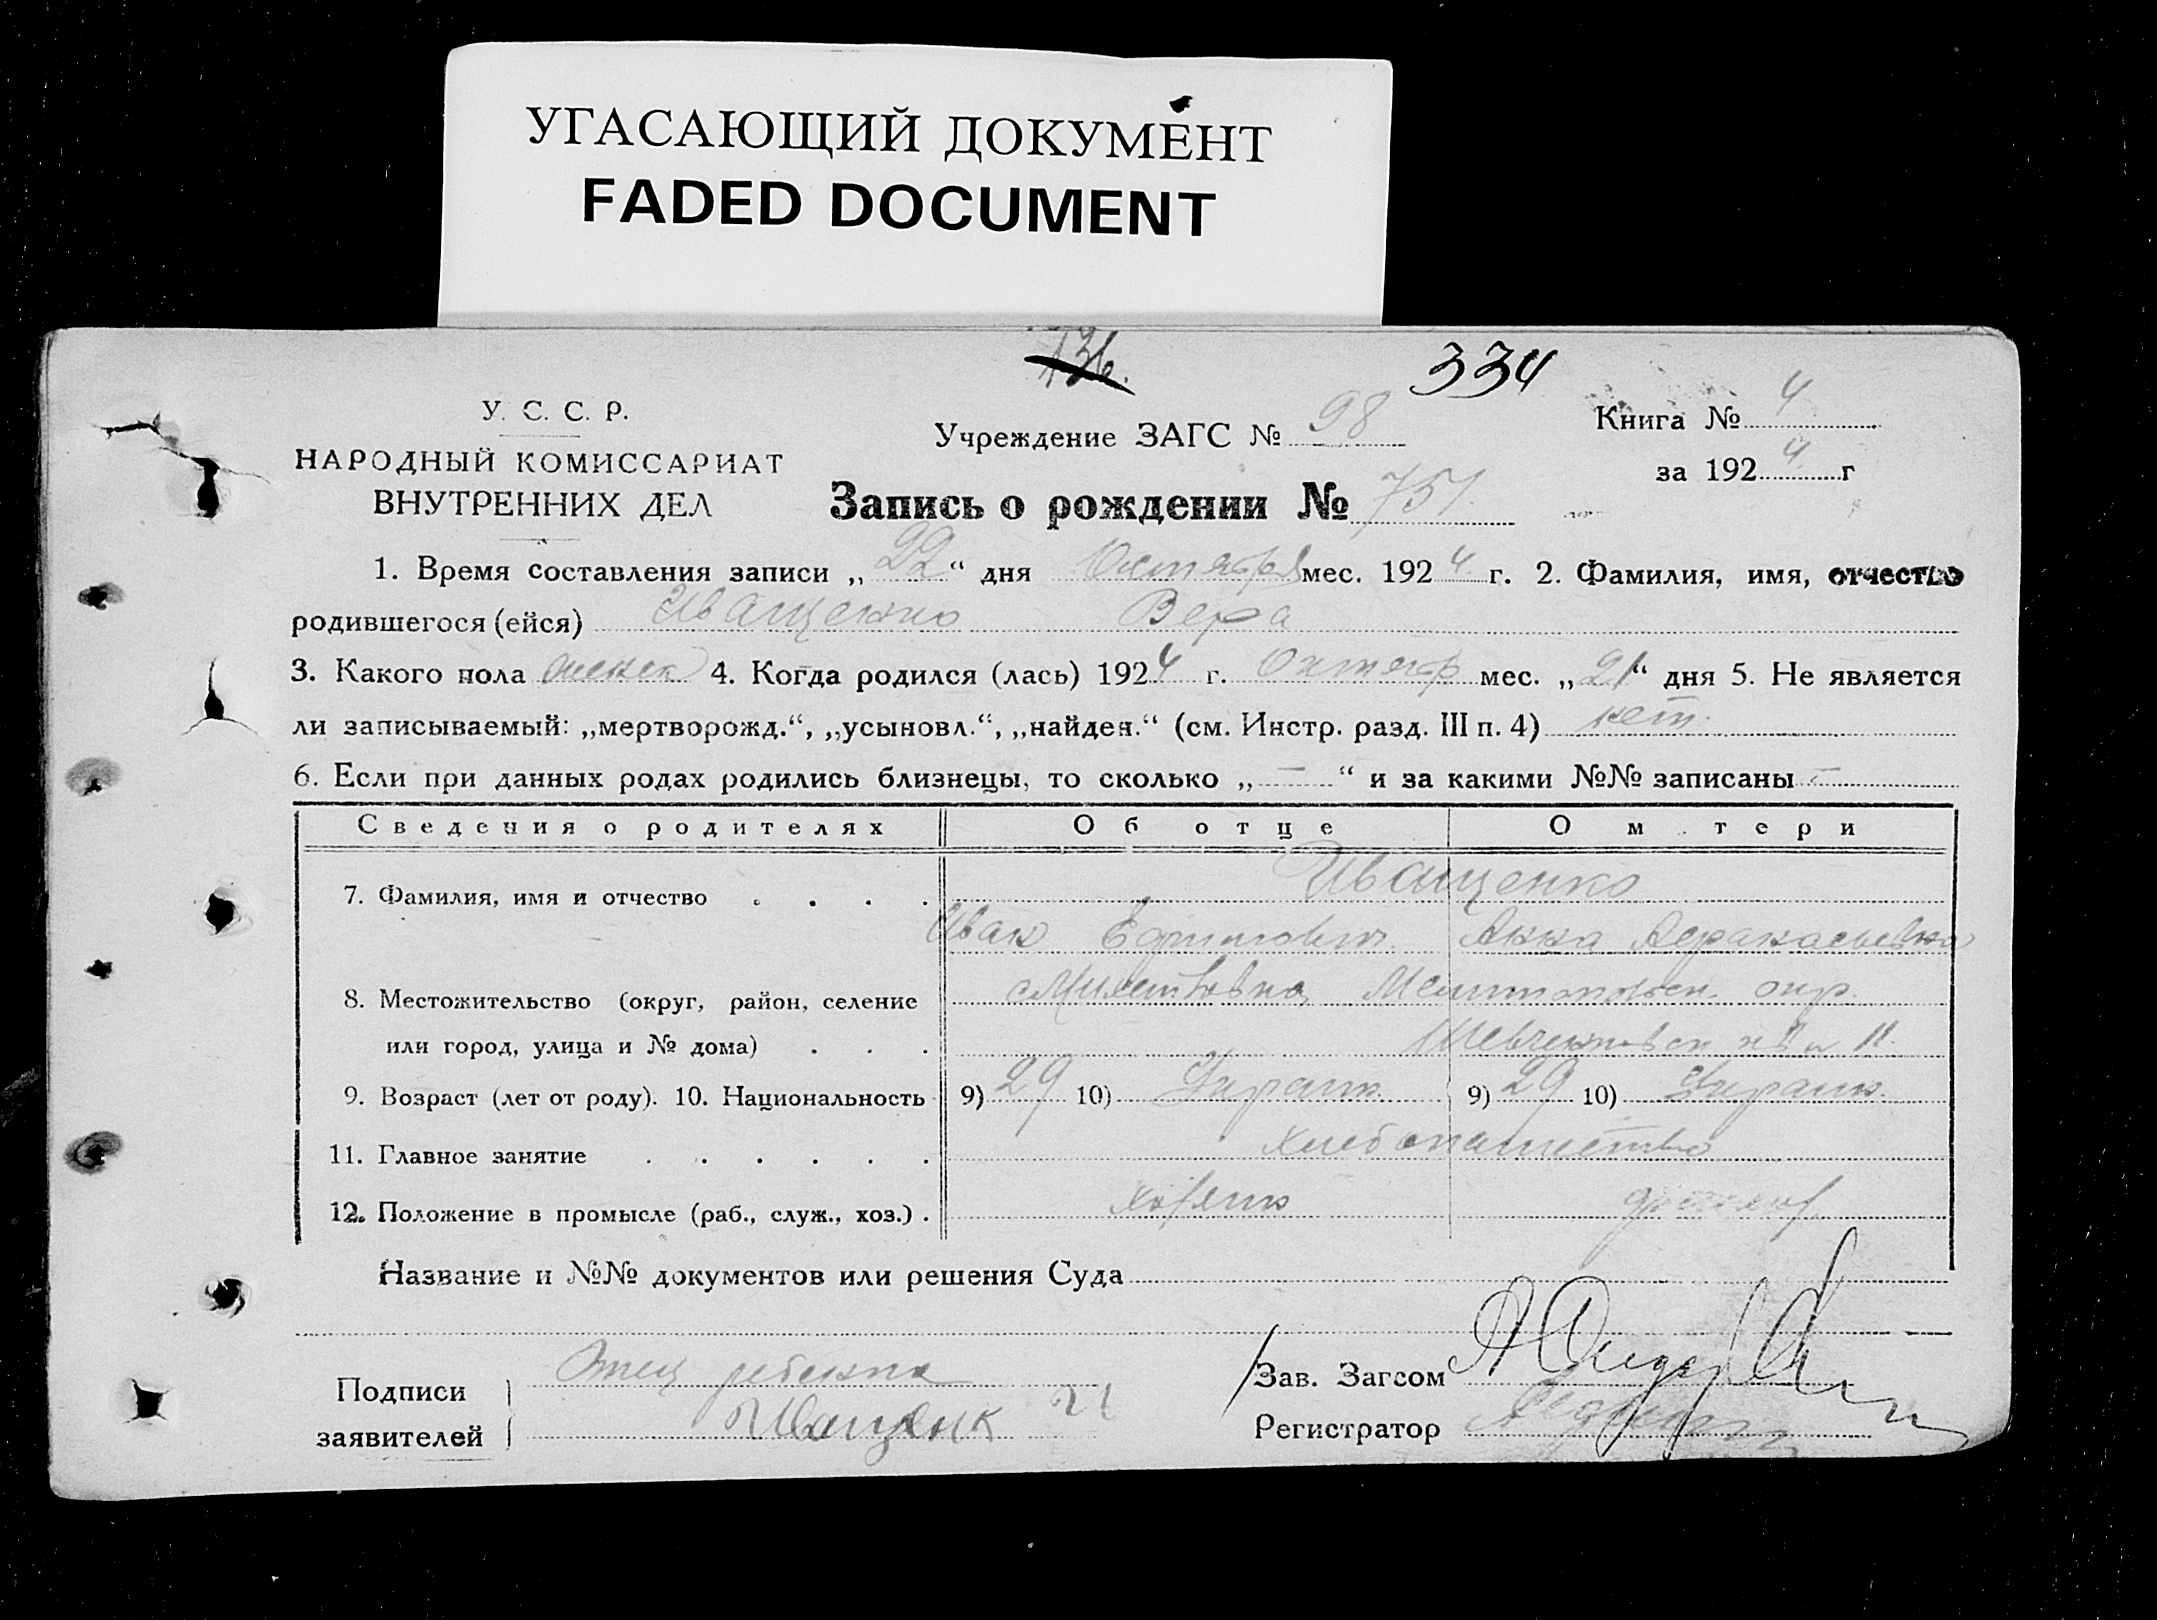 УГАСАЮЩИЙ ДОКУМЕНТ
FADED DOCUMENT
136.
334
У. С. С. Р.
НАРОДНЫЙ КОМИССАРИАТ
ВНУТРЕННИХ ДЕЛ
Учреждение ЗАГС № 98
Книга № 4
за 1924 г
Запись о рождении № 751.
1. Время составления записи „22“ дня Октября мес. 1924 г. 2. Фамилия, имя, отчество
родившегося (ейся) Иващенко Вера
3. Какого пола женск 4. Когда родился (лась) 1924 г. Октябр мес. „21“ дня 5. Не является
ли записываемый: „мертворожд.“, „усыновл.“, „найден.“ (см. Инстр. разд. III п. 4) нет.
6. Если при данных родах родились близнецы, то сколько „—“ и за какими №№ записаны —
Сведения о родителях Об отце О м тери
7. Фамилия, имя и отчество Иващенко
Иван Ефимович Анна Афанасьевна
8. Местожительство (округ, район, селение окр.
или город, улица и № дома)
9. Возраст (лет от роду). 10. Национальность 9) 29 10) Украин. 9) 29 10) Украин.
11. Главное занятие хлебопашество
12. Положение в промысле (раб., служ., хоз.) хозяин
Название и №№ документов или решения Суда
Подписи
заявителей
Отец ребенка
Иващенк
Зав. Загсом
Регистратор